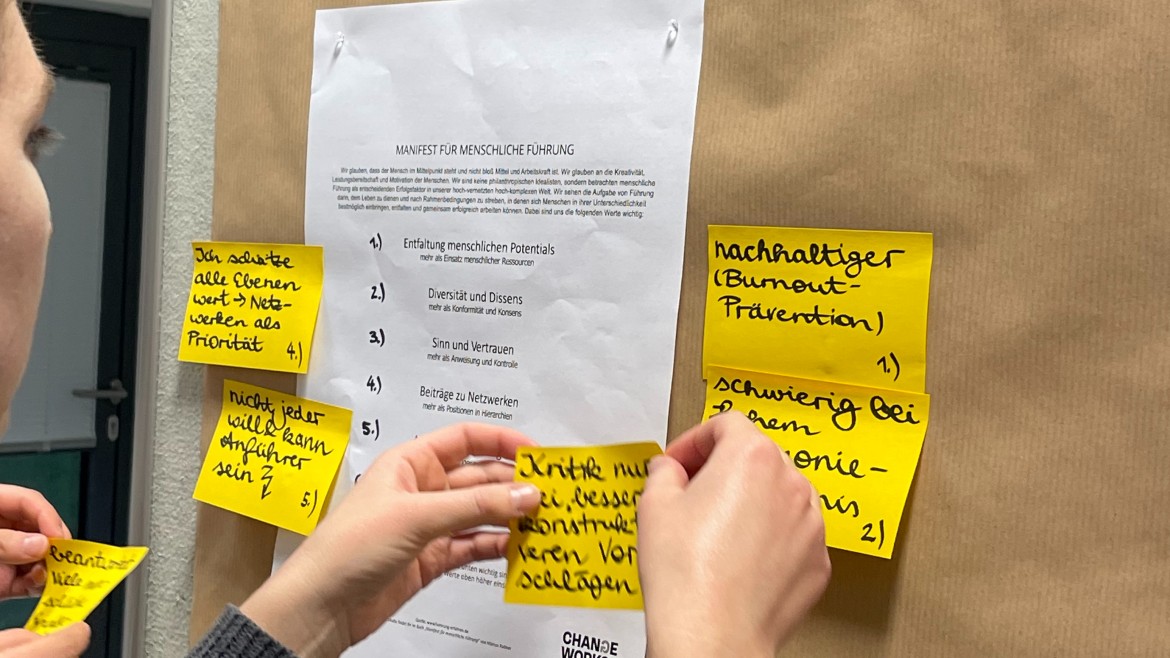 MANIFEST FÜR MENSCHLICHE FÜHRUNG
Wir glauben, dass der Mensch im Mittelpunkt steht und nicht bloß Mittel und Arbeitskraft ist. Wir glauben an die Kreativität,
Leistungsbereitschaft und Motivation der Menschen. Wir sind keine philanthropischen Idealisten, sondern betrachten menschliche
Führung als entscheidenden Erfolgsfaktor in unserer hoch-vernetzten hoch-komplexen Welt. Wir sehen die Aufgabe von Führung
darin, dem Leben zu dienen und nach Rahmenbedingungen zu streben, in denen sich Menschen in ihrer Unterschiedlichkeit
bestmöglich einbringen, entfalten und gemeinsam erfolgreich arbeiten können. Dabei sind uns die folgenden Werte wichtig:
1.) Entfaltung menschlichen Potentials
mehr als Einsatz menschlicher Ressourcen
2.) Diversität und Dissens
mehr als Konformität und Konsens
3.) Sinn und Vertrauen
mehr als Anweisung und Kontrolle
4.) Beiträge zu Netzwerken
mehr als Positionen in Hierarchien
5.)
CHANGE
WORKS
Ich schätze
alle Ebenen
wert → Netz-
werken als
Priorität 4.)
nicht jeder
will & kann
Anführer
sein 5.)
Kritik nur
, besser
konstrukt
ieren Vor
schlägen
nachhaltiger
(Burnout-
Prävention)
1.)
schwierig bei
onie-
nis
2.)
Viele